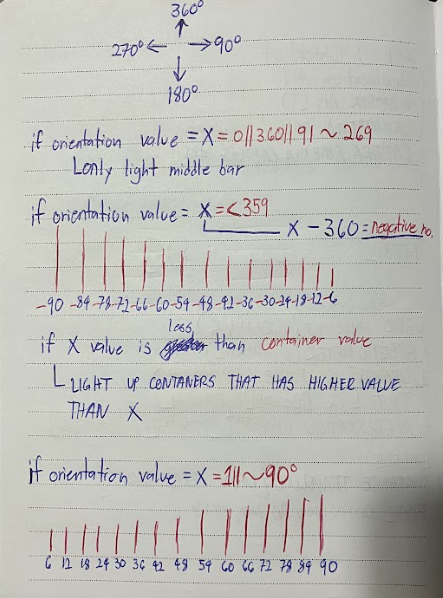 360°
270° ← → 90°
180°
if orientation value = X = 0||360||91 ~ 269
only light middle bar
if orientation value = X = < 359
X - 360 = negative no.
-90 -84 -78 -72 -66 -60 -54 -48 -42 -36 -30 -24 -18 -12 -6
less
if X value is than container value
LIGHT UP CONTANERS THAT HAS HIGHER VALUE
THAN X
if orientation value = X = 1|| ~ 90°
6 12 18 24 30 36 42 48 54 60 66 72 78 84 90